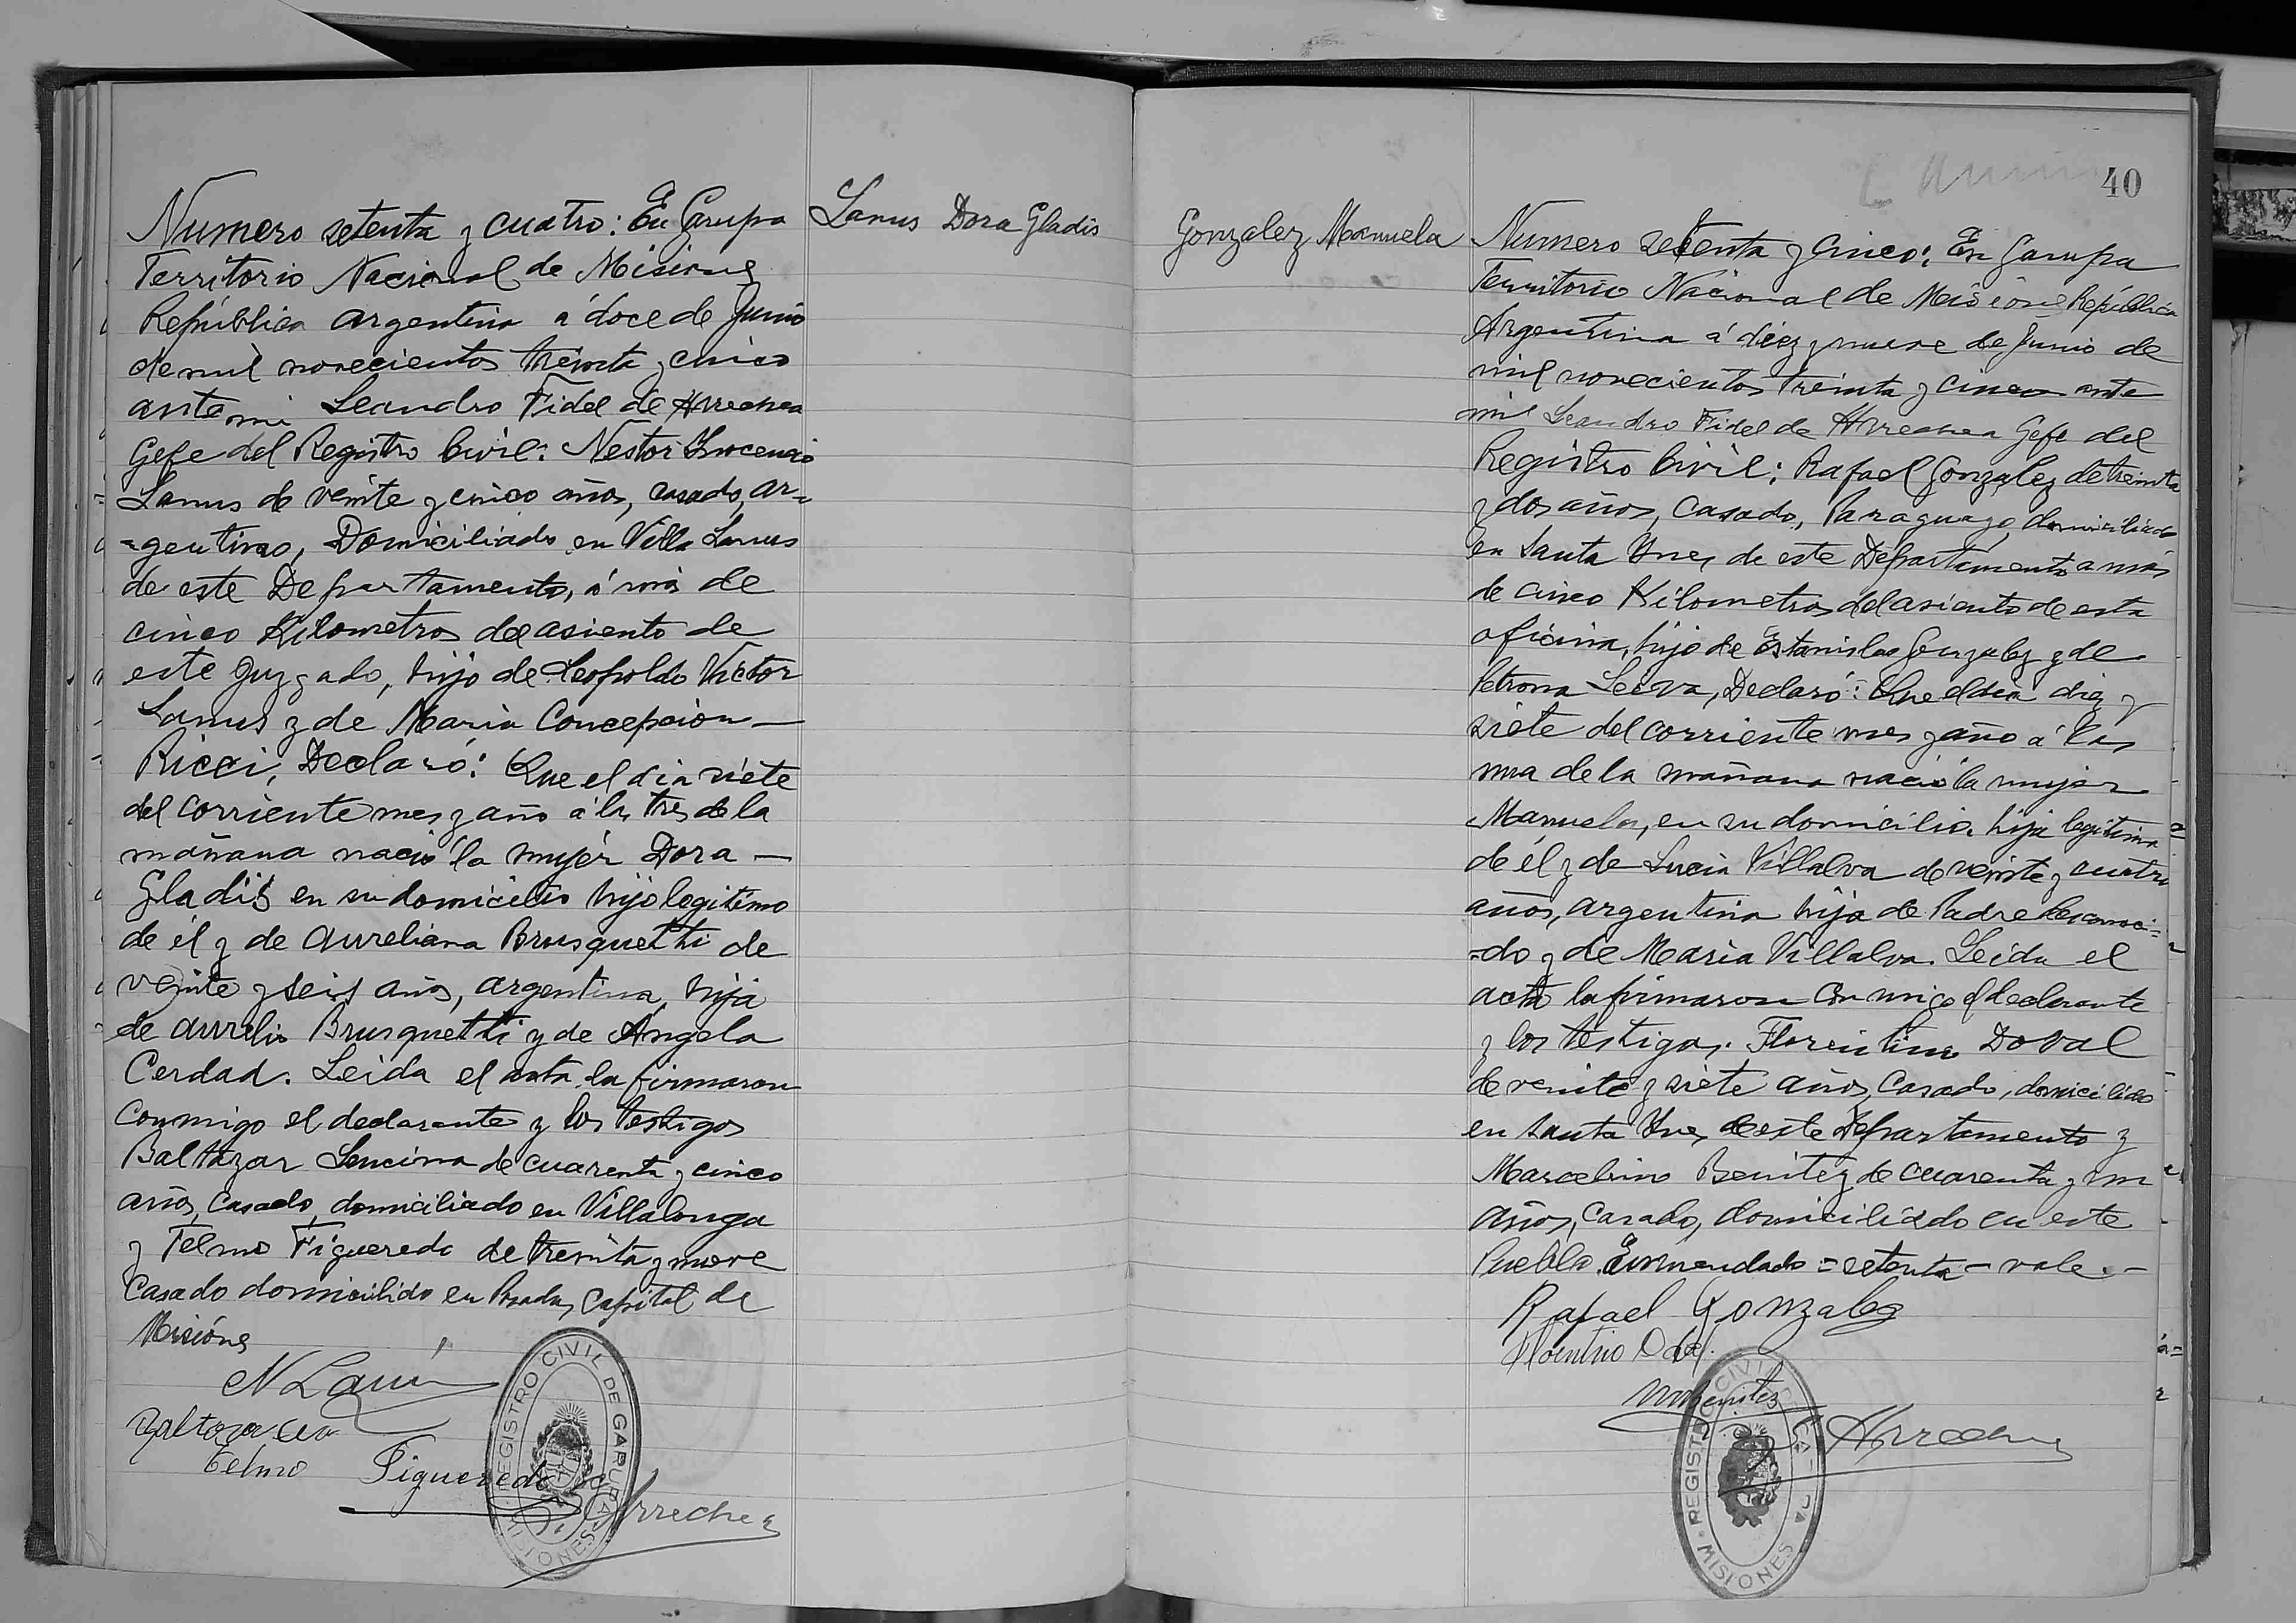 Numero setenta y cuatro: En Garupa
Territorio Nacional de Misiones
República argentina a doce de Junio
de mil novecientos treinta y cinco
ante mi Leandro Fidel de Arrechea
Gefe del Registro Civil: Nestor Inocencio
Lanus de veinte y cinco años, casado, ar=
=gentino, Domiciliado en Villa Lanus
de este Departamento, á más de
cinco Kilometros del asiento de
este Juzgado, hijo de Leopoldo Victor
Lanus y de Maria Concepcion —
Ricci, Declaró: Que el dia siete
del corriente mes y año a las tres de la
mañana nació la mujer Dora —
Gladis en su domicilio hijo legitimo
de él y de Aureliana Brusquetti de
veinte y seis años, argentina, hija
de Aurelio Brusquetti y de Angela
Cerdad. Leida el acta la firmaron
conmigo el declarante y los testigos
Baltazar Lencina de cuarenta y cinco
años, casado, domiciliado en Villalonga
y Telmo Figueredo de treinta y nueve
casado domicilido en Posadas, capital de
Misiónes
N Lanús
Baltaza
Telmo Figueredo
Arrechea
REGISTRO CIVIL DE GARUPA
MISIONES
Lanus Dora Gladis
Gonzalez Manuela
40
Numero setenta y cinco: En Garupa
Territorio Nacional de Misiones República
Argentina á diez y nueve de Junio de
mil novecientos treinta y cinco ante
mi Leandro Fidel de Arrechea Gefe del
Registro Civil; Rafael Gonzalez de treinta
y dos años, Casado, Paraguayo, domiciliado
en Santa Ynes, de este Departamento a más
de cinco Kilometros del asiento de esta
oficina, hijo de Estanislao Gonzalez y de
Petrona Leiva, Declaró: Que el dia diez y
siete del corriente mes y año á las
una de la mañana nació la mujer
Manuela, en su domicilio, hija legitima
de él y de Lucia Villalva de veinte y cuatro
años, argentina hija de Padre desconoci=
=do y de Maria Villalva. Leida el
acta la firmaron conmigo el declarante
y los testigos. Florentino Doval
de veinte y siete años, casado, domicilido
en Santa Ynes, de este Departamento y
Marcelino Benitez de cuarenta y un
años, casado, domiciliado en este
Pueblo. Enmendado = setenta = vale.-
Rafael Gonzalez
Florentino Doval.
M Benitez
Arrechea
REGISTRO CIVIL DE GARUPA
MISIONES